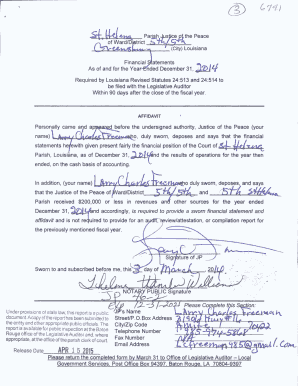 3 6791
St. Helena Parish Justice of the Peace
of Ward/District 5th/5th
Greensburg (City) Louisiana
Financial Statements
As of and for the Year Ended December 31, 2014
Required by Louisiana Revised Statutes 24:513 and 24:514 to
be filed with the Legislative Auditor
Within 90 days after the close of the fiscal year.
AFFIDAVIT
Personally came and appeared before the undersigned authority, Justice of the Peace (your
name) Larry Charles Freeman, duly sworn, deposes and says that the financial
statements herewith given present fairly the financial position of the Court of St Helena
Parish, Louisiana, as of December 31, 2014 and the results of operations for the year then
ended, on the cash basis of accounting.
In addition, (your name) Larry Charles Freeman duly sworn, deposes, and says
that the Justice of the Peace of Ward/District 5th/5th and St Helena
Parish received $200,000 or less in revenues and other sources for the year ended
December 31, 2014 and accordingly, is required to provide a sworn financial statement and
affidavit and is not required to provide for an audit, review/attestation, or compilation report for
the previously mentioned fiscal year.
Signature of JP
Sworn to and subscribed before me, this 3 day of March, 20
NOTARY PUBLIC Signature
Under provisions of state law, this report is a public
document. A copy of the report has been submitted to
the entity and other appropriate public officials. The
report is available for public inspection at the Baton
Rouge office of the Legislative Auditor and, where
appropriate, at the office of the parish clerk of court.
Release Date APR 15 2015
Please Complete this Section:
JP's Name Larry Charles Freeman
Street/P.O.Box Address
City/Zip Code Amite
Telephone Number 985-974-5868
Fax Number
Email Address
Please return the completed form by March 31 to Office of Legislative Auditor – Local
Government Services, Post Office Box 94397, Baton Rouge, LA 70804-9397